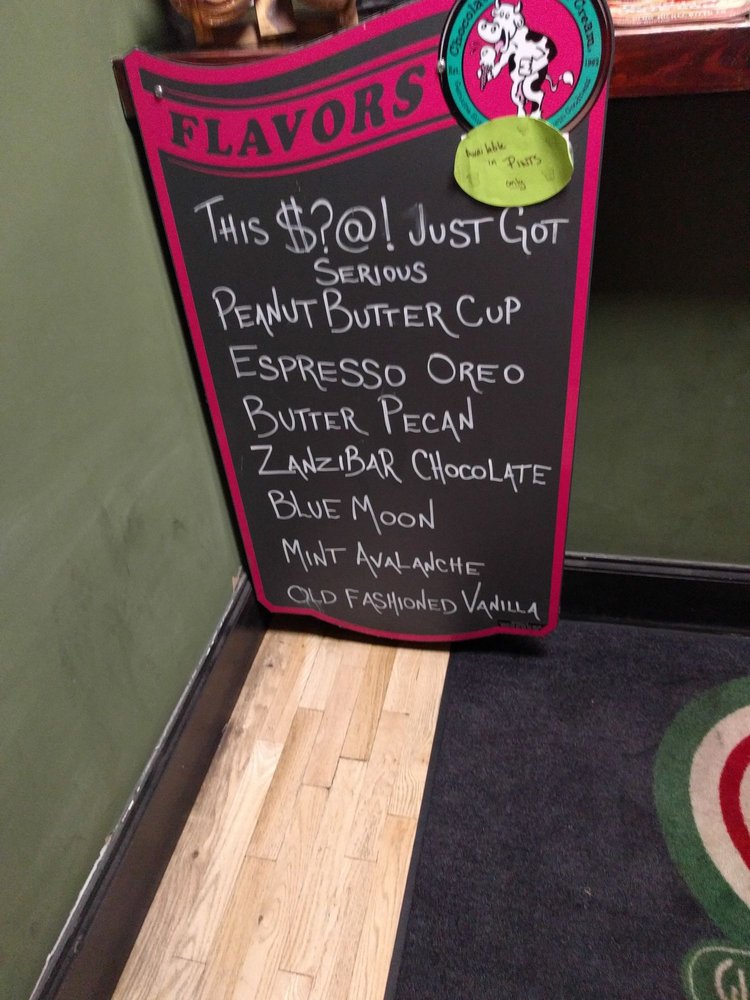 FLAVORS
Available
in PINTS
only
THIS $?@! JUST GOT
SERIOUS
PEANUT BUTTER CUP
ESPRESSO OREO
BUTTER PECAN
ZANZIBAR CHOCOLATE
BLUE MOON
MINT AVALANCHE
OLD FASHIONED VANILLA